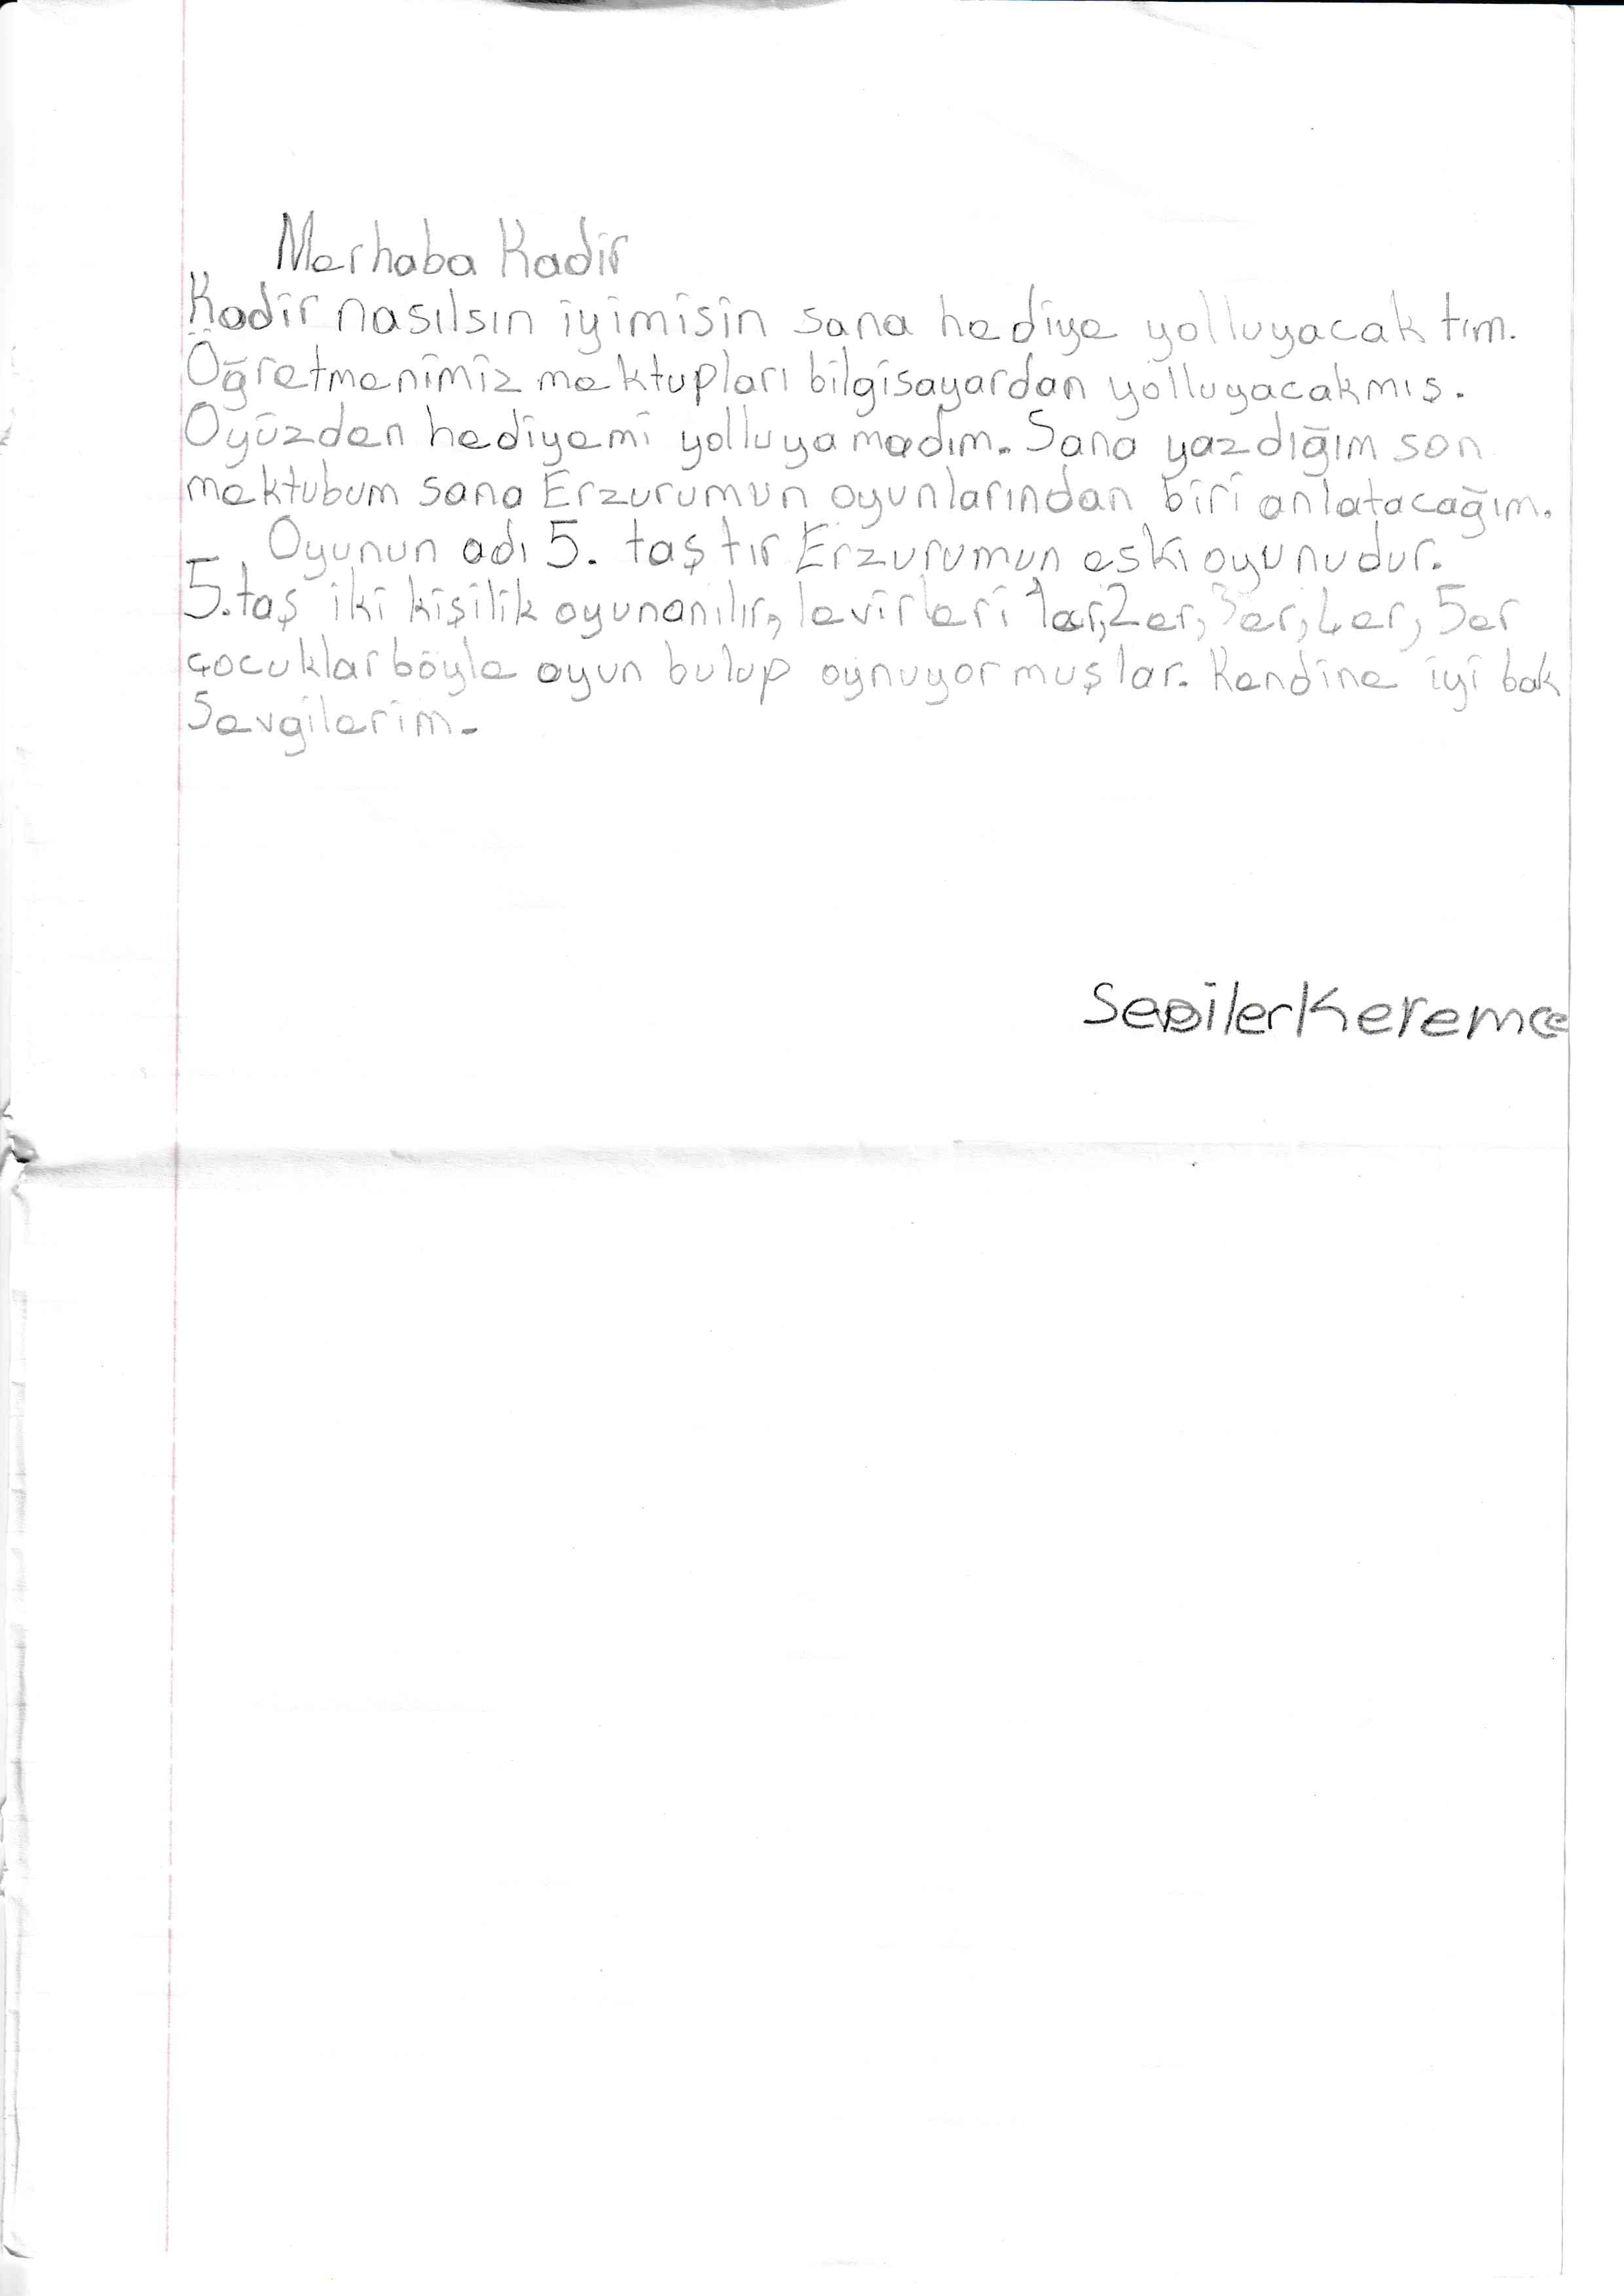 Merhaba Kadir
Kadir nasılsın iyimisin sana hediye yolluyacak tım.
Öğretmenimiz mektupları bilgisayardan yolluyacakmış.
Oyüzden hediyemi yolluya madım. Sana yazdığım son
mektubum sana Erzurumun oyunlarından biri anlatacağım.
Oyunun adı 5. taş tır Erzurumun eski oyunudur.
5.taş iki kişilik oyunanılır, levirleri 1er, 2er, 3er, 4er, 5er
çocuklar böyle oyun bulup oynuyor muşlar. Kendine iyi bak
Sevgilerim.